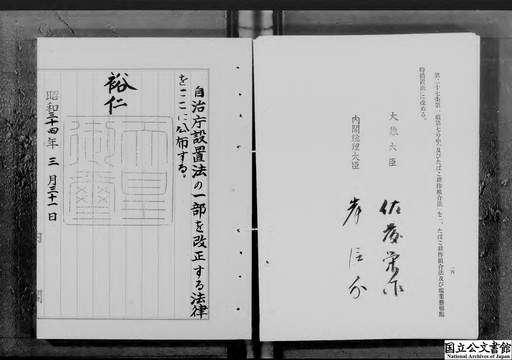 第二十七条第一項第七号中「及びたばこ耕作組合法」を「、たばこ耕作組合法及び塩業整備臨
時措置法」に改める。
大蔵大臣 佐藤栄作
内閣総理大臣 岸信介
自治庁設置法の一部を改正する法律
をここに公布する。
裕仁
天皇
御璽
昭和三十四年三月三十一日
国立公文書館
National Archives of Japan